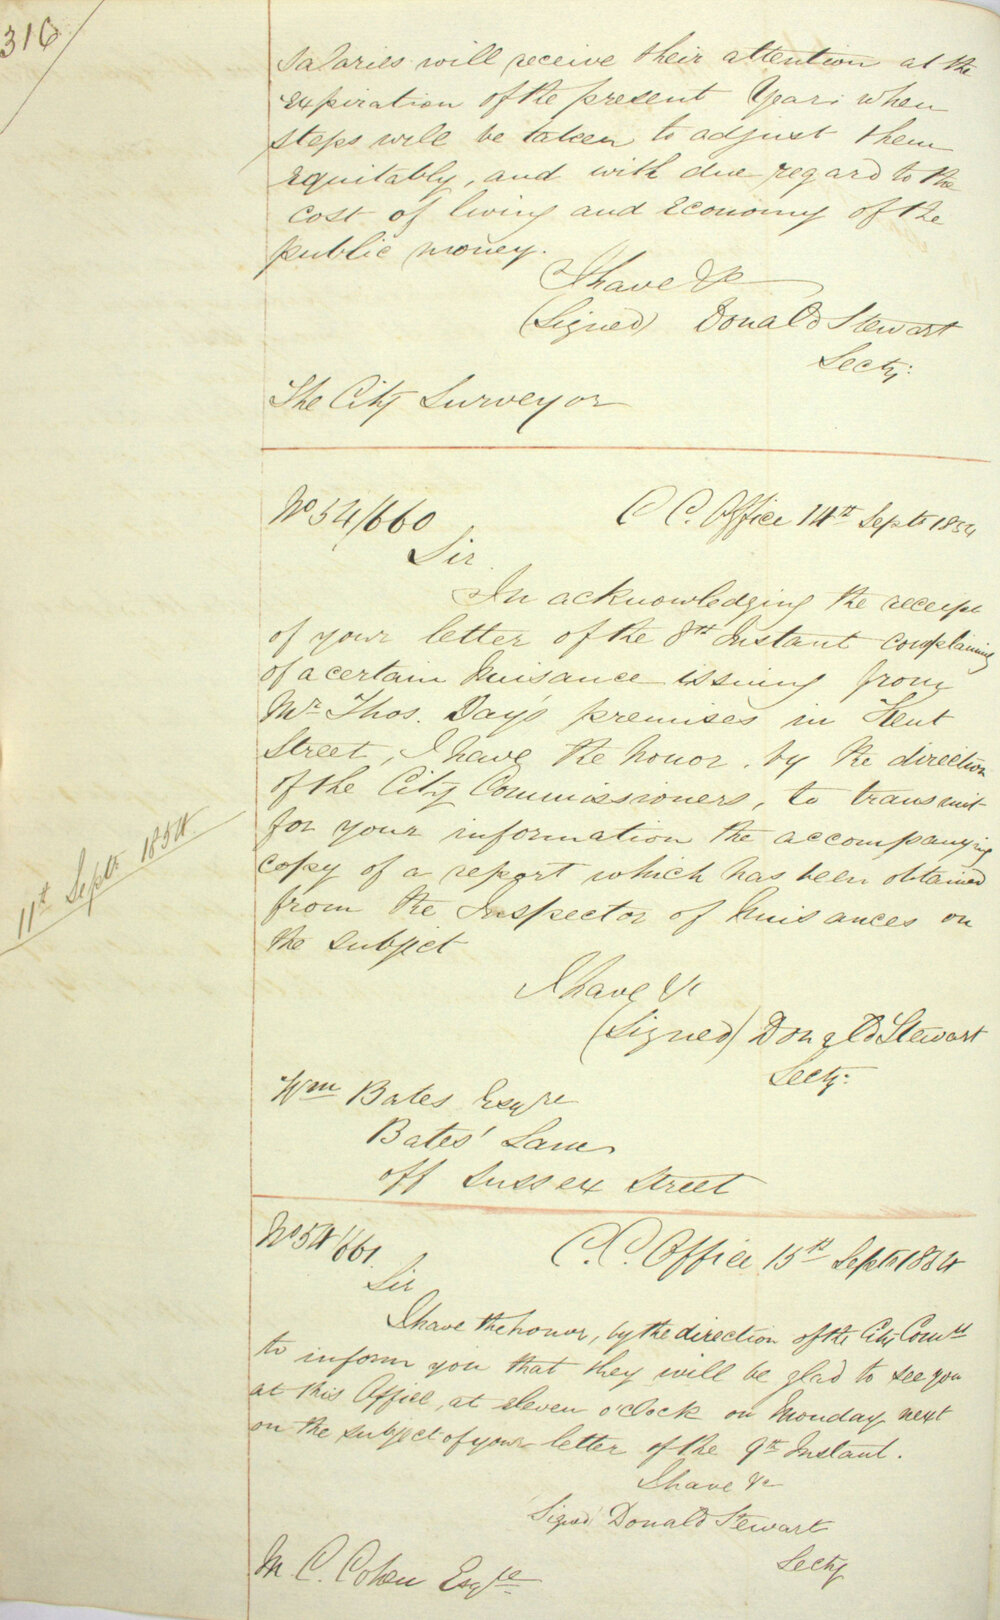 316
Salaries will receive their attention at the
expiration of the present Year; when
steps will be taken to adjust them
equitably, and with due regard to the
cost of living and economy of the
public money.
I have &c
(Signed) Donald Stewart
Secty:
The City Surveyor
No 54/660
C C. Office 14th Septr 1854
Sir
In acknowledging the receipt
of your letter of the 8th Instant complaining
of a certain Nuisance issuing from
Mr Thos. Day's premises in Kent
Street, I have the honor, by the direction
of the City Commissioners, to transmit
for your information the accompanying
copy of a report which has been obtained
11th Septr 1854.
from the Inspector of Nuisances on
the subject
I have &c
(Signed) Donald Stewart
Secty:
Wm Bates Esqre
Bates' Lane
off Sussex Street
No 54/661
C. C. Office 15th Septr 1854
Sir
I have the honor, by the direction of the City Comrs
to inform you that they will be glad to see you
at this Office, at eleven o'clock on Monday next
on the subject of your letter of the 9th Instant.
I have &c
Signed Donald Stewart
Secty
M. C. Cohen Esqre